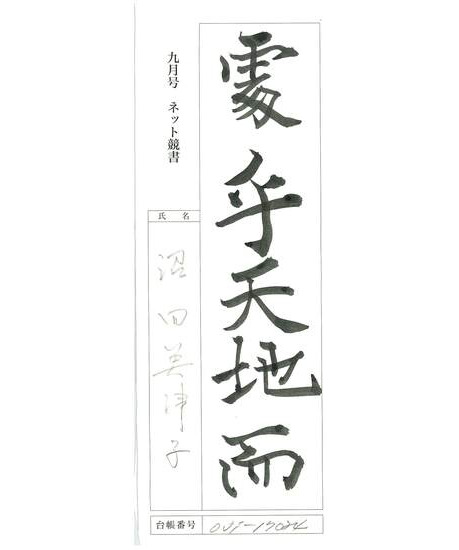 處乎天地而
九月号 ネット競書
氏名
沼田美津子
台帳番号